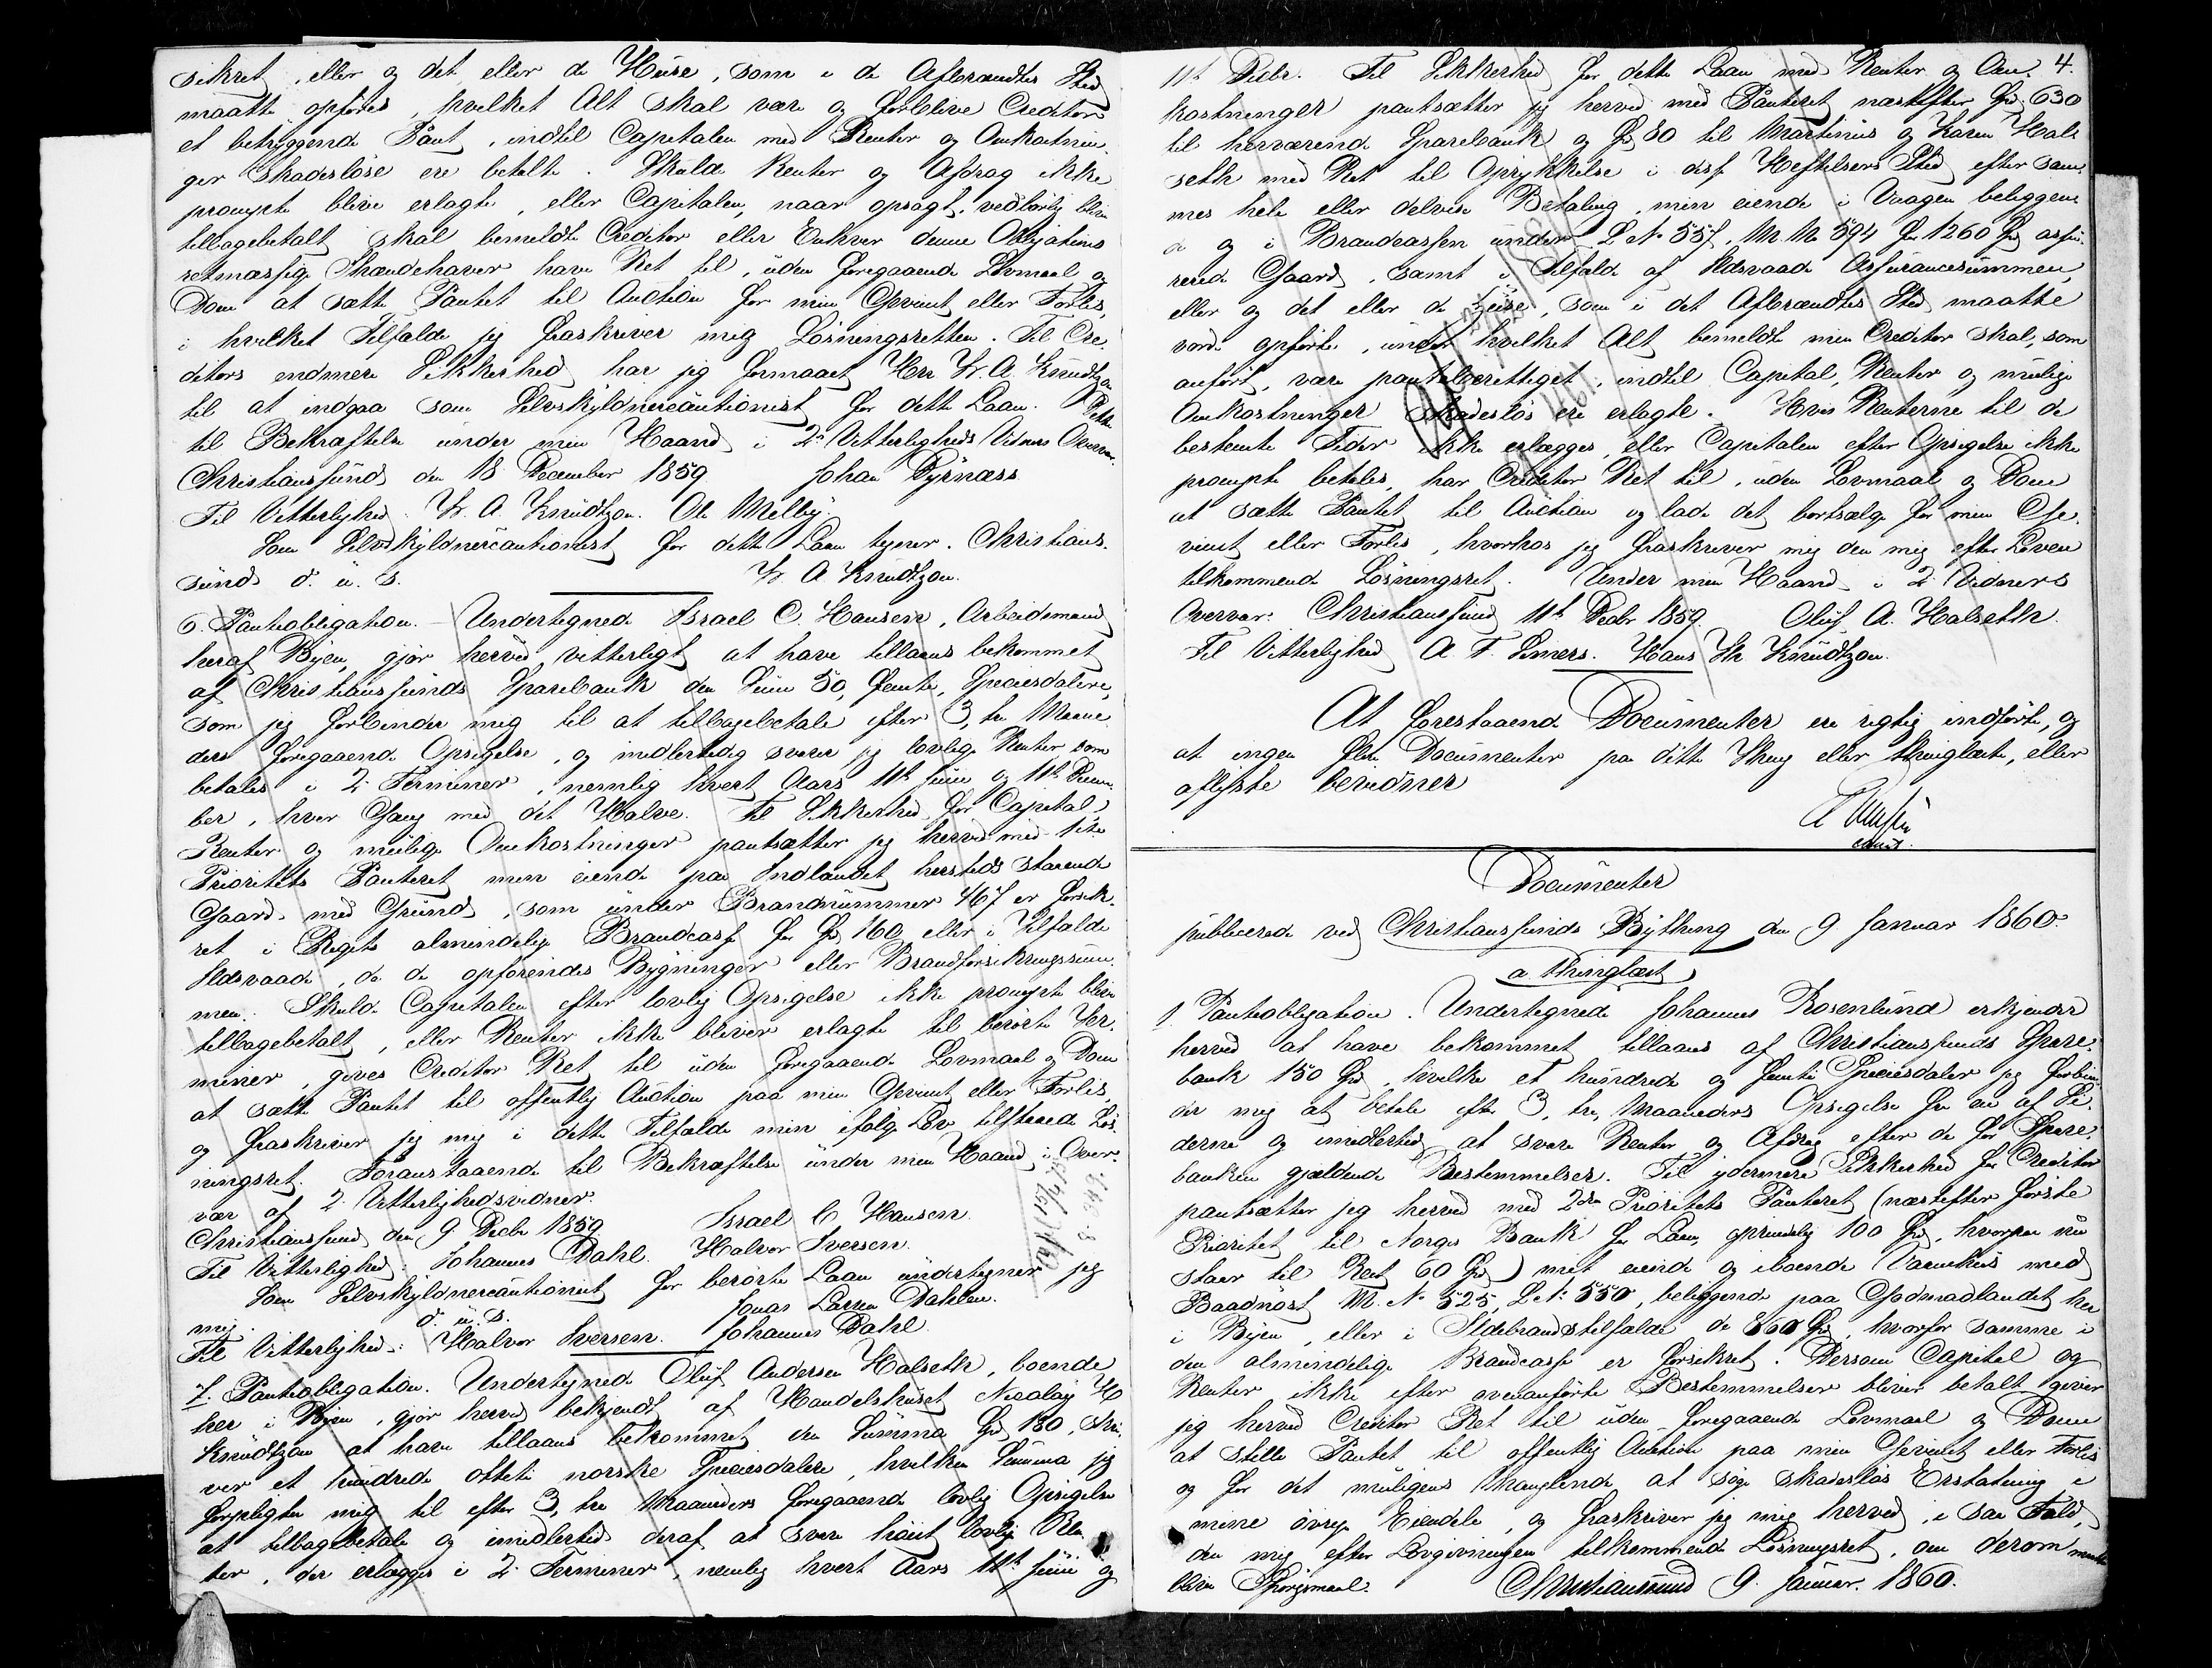 sikret, eller og det eller de Huse, som i de Afbrændtes Sted
maatte opføres, hvilket Alt skal være og forblive Creditors
et betryggende Pant, indtil Capitalen med Renter og Omkostnin-
ger skadesløse ere betalte. Skulde Renter og Afdrag ikke
prompte blive erlagte, eller Capitalen, naar opsagt, vedbørlig blive
tilbagebetalt skal bemeldte Creditor eller Enhver denne Obligations
retmæssige Ihændehaver have Ret til, uden foregaaende Lovmaal og
Dom at sætte Pantet til Auction for min Gevinst eller Forlis,
i hvilket Tilfælde jeg fraskriver mig Løsningsretten. Til Cre-
ditors endmere Sikkerhed har jeg formaaet Herr Fr. A. Knudtzon
til at indgaa som Selvskyldnercautionist for dette Laan. Dette
til Bekræftelse under min Haand i 2de Vitterligheds Vidners Overvær.
Christiansund den 18 December 1859. Johan Dyrnæss
Til Vitterlighed. Fr. A. Knudtzon. Ole Melby.
Som Selvskyldnercautionist for dette Laan tegner. Christian-
sund d. u. s. Fr. A Knudtzon.
6. Panteobligation. – Undertegnede Israel C. Hansen, Arbeidsmand
heraf Byen, gjør herved vitterligt at have tillaans bekommet
af Christiansunds Sparebank den Sum 50, femti, Speciesdalere,
som jeg forbinder mig til at tilbagebetale efter 3, tre Maane-
ders foregaaende Opsigelse, og imidlertidig svarer jeg lovlige Renter som
betales i 2 Terminer, nemlig hvert Aars 11te Juni og 11te Decem-
ber, hver Gang med det Halve. Til Sikkerhed for Capital,
Renter og mulige Omkostninger pantsætter jeg herved med 1ste
Prioritets Panteret min eiende paa Indlandet hersteds staaende
Gaard med Grund, som under Brandnummer 467 er forsik-
ret i Rigets almindelige Brandcasse for Spd 160 eller i Tilfælde
Ildsvaade, da de opførendes Bygninger eller Brandforsikringssum-
men. Skulde Capitalen efter lovlig Opsigelse ikke prompte blive
tilbagebetalt, eller Renter ikke bliver erlagte til berørte Ter-
miner, gives Creditor Ret til uden foregaaende Lovmaal og Dom
at sætte Pantet til offentlig Auction paa min Gevinst eller Forlis,
og fraskriver jeg mig i dette Tilfælde min ifølge Lov tilstaaede Løs-
ningsret. Foranstaaende til Bekræftelse under min Haand i Over-
vær af 2 Vitterlighedsvidner.
Christiansund den 9 Decbr 1859. Israel C Hansen
Til Vitterlighed: Johannes Dahl. Halvor Iversen.
Som Selvskyldnercautionist for berørte Laan undertegner jeg
mig. d. u. s. Jonas Larsen Dahlen.
Til Vitterlighed: Halvor Iversen. Johannes Dahl.
7. Panteobligation. Undertegnede Oluf Andersen Halseth, boende
her i Byen, gjør herved bekjendt af Handelshuset Nicolay H
Knudtzon at have tillaans bekommet den Summa Spd 180, skri-
ver et hundrede otteti norske Speciesdalere, hvilken Summa jeg
forpligter mig til efter 3, tre Maaneders foregaaende lovlig Opsigelse
at tilbagebetale og imidlertid deraf at svare høiest lovlige Ren-
ter, der erlægges i 2 Terminer, nemlig hvert Aars 11te Juni og
4.
11te Decbr. Til Sikkerhed for dette Laan med Renter og Om-
kostninger pantsætter jeg herved med Panteret næstefter Spd. 630
til herværende Sparebank og Spd 80 til Martinus og Karen Hals-
seth med Ret til Oprykkelse i disse Heftelsers Sted efter sam-
mes hele eller delvise Betaling, min eiende i Vaagen beliggen-
de og i Brandcassen under L No 557, M. No 594 for 1260 Spd assu-
rerede Gaard, samt i Tilfælde af Ildsvaade Assurancesummen,
eller og det eller de Huse, som i det Afbrændtes Sted maatte
vorde opførte, under hvilket Alt bemeldte min Creditor skal, som
anført, være panteberettiget, indtil Capital, Renter og mulige
Omkostninger skadesløs ere erlagte. Hvis Renterne til de
bestemte Tider ikke erlægges, eller Capitalen efter Opsigelse ikke
prompte betales, har Creditor Ret til, uden Lovmaal og Dom
at sætte Pantet til Auction og lade det bortsælge for min Ge-
vinst eller Forlis, hvorhos jeg fraskriver mig den mig efter Loven
tilkommende Løsningsret. Under min Haand i 2 Vidners
Overvær. Christiansund 11te Decbr 1859. Oluf A. Halseth.
Til Vitterlighed A F. Simers. Hans Kr Knudtzon.
At forestaaende Documenter ere rigtig indførte, og
at ingen flere Documenter paa dette Thing eller thinglæste, eller
aflyste bevidner
const.
Documenter
publicerede ved Christiansunds Bything den 9 Januar 1860.
a. Thinglæst
1. Panteobligation. Undertegnede Johannes Rosenlund erkjender
herved at have bekommet tillaans af Christiansunds Spare-
bank 150 Spd, hvilke et hundrede og femti Speciesdaler jeg forbin-
der mig at betale efter 3, tre, Maaneders Opsigelse fra en af Si-
derne og imidlertid at svare Renter og Afdrag efter de for Spare-
banken gjældende Bestemmelser. Til ydermere Sikkerhed for Creditor
pantsætter jeg herved med 2den Prioritets Panteret (næstefter første
Prioritet til Norges Bank for Laan, oprindelig 100 Spd, hvorpaa nu
staar til Rest 60 Spd) mit eiende og iboende Vaanehus med
Baadnøst M. No 525, L No 550, beliggende paa Godmadlandet her
i Byen, eller i Ildebrandstilfælde de 860 Spd, hvorfor samme i
den almindelige Brandcasse er forsikret. Dersom Capital og
Renter ikke efter ovenanførte Bestemmelser bliver betalt giver
jeg herved Creditor Ret til uden foregaaende Lovmaal og Dom
at stille Pantet til offentlig Auction paa min Gevinst eller Forlis
og for det muligens Manglende at søge skadesløs Erstatning i
mine øvrige Eiendele, og fraskriver jeg mig herved, i saa Fald,
den mig efter Lovgivningen tilkommende Løsningsret, om derom maatte
blive Spørgsmaal. Christiansund 9. Januar. 1860.